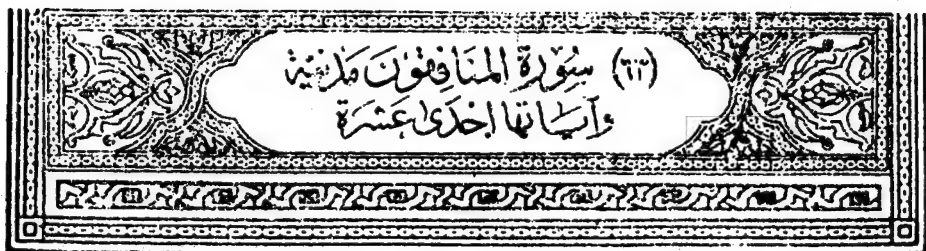 (٦٣) سُورَةُ المُنَافِقُونَ مَدَنِيَّة
وَآيَاتُهَا إِحْدَى عَشْرَة